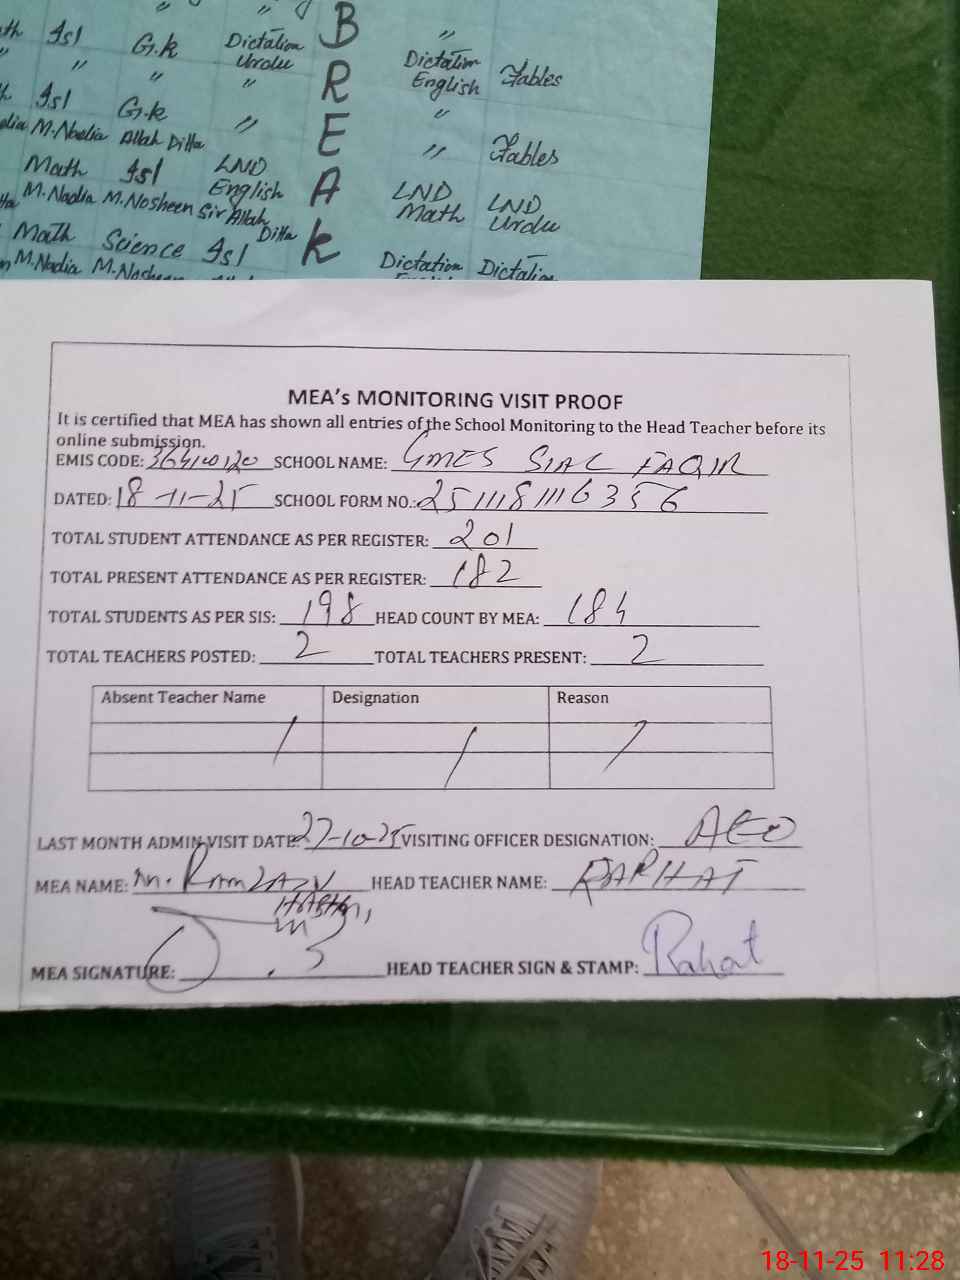 th Isl G.k Dictation Urdu B "
" " " " R Dictation English Tables
Isl G.k "
M.Nadia Allah Ditta " E " Tables
Math Isl LND English A LND Math LND Urdu
M.Nadia M.Nosheen Sir Allah Ditta
Math Science Isl k Dictation Dictation
M.Nadia M.Nosheen
MEA's MONITORING VISIT PROOF
It is certified that MEA has shown all entries of the School Monitoring to the Head Teacher before its
online submission.
EMIS CODE: 36410120 SCHOOL NAME: GMES SIAL FAQIR
DATED: 18-11-25 SCHOOL FORM NO.: 2511181116356
TOTAL STUDENT ATTENDANCE AS PER REGISTER: 201
TOTAL PRESENT ATTENDANCE AS PER REGISTER: 182
TOTAL STUDENTS AS PER SIS: 198 HEAD COUNT BY MEA: 184
TOTAL TEACHERS POSTED: 2 TOTAL TEACHERS PRESENT: 2
Absent Teacher Name Designation Reason
LAST MONTH ADMIN VISIT DATE: 27-10-25 VISITING OFFICER DESIGNATION: AEO
MEA NAME: M. Ramzan HEAD TEACHER NAME: FARHAT
MEA SIGNATURE: HEAD TEACHER SIGN & STAMP: Rahat
18-11-25 11:28